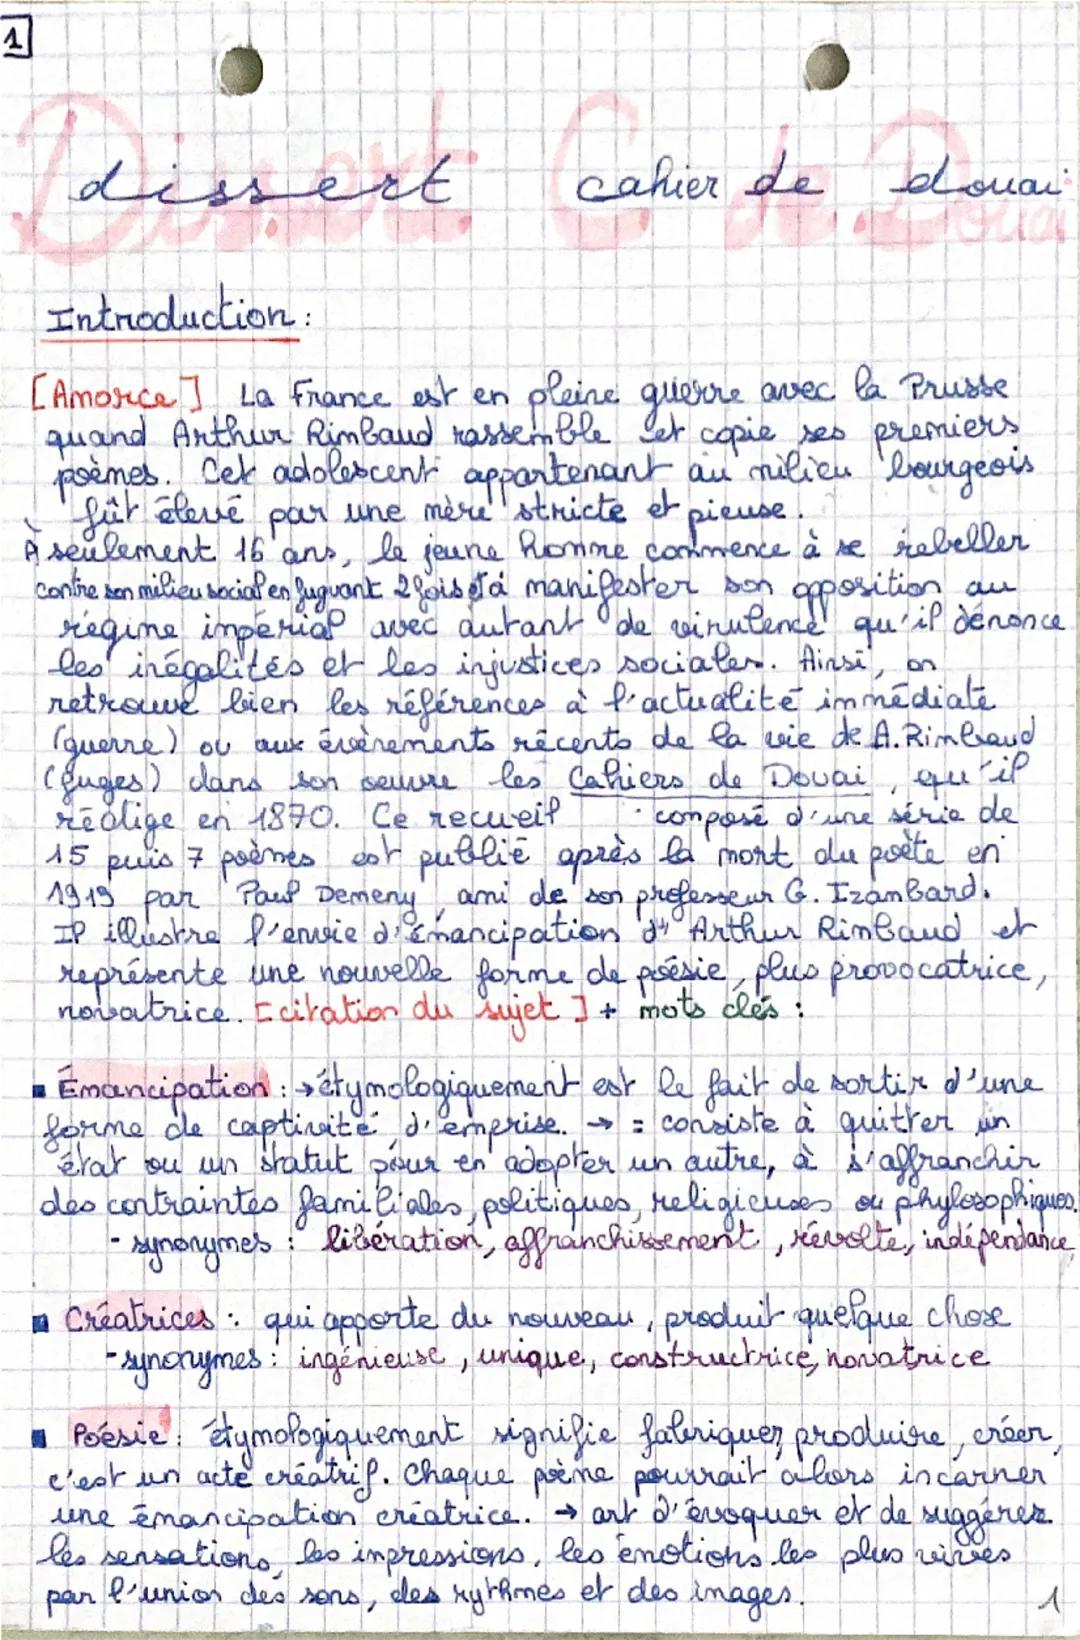 1
dissert cahier de douai
Introduction :
[Amorce] La France est en pleine guerre avec la Prusse
quand Arthur Rimbaud rassemble et copie ses premiers
poèmes. Cet adolescent appartenant au milieu bourgeois
fût élevé par une mère stricte et pieuse.
À seulement 16 ans, le jeune homme commence à se rebeller
contre son milieu social en fuguant 2 fois et à manifester son opposition au
régime impérial avec autant de virulence qu'il dénonce
les inégalités et les injustices sociales. Ainsi, on
retrouve bien les références à l'actualité immédiate
(guerre) ou aux évènements récents de la vie de A. Rimbaud
(fuges) dans son oeuvre les Cahiers de Douai, qu'il
rédige en 1870. Ce recueil composé d'une série de
15 puis 7 poèmes est publié après la mort du poète en
1919 par Paul Demeny, ami de son professeur G. Izambard.
Il illustre l'envie d'émancipation d' Arthur Rimbaud et
représente une nouvelle forme de poésie, plus provocatrice,
novatrice. [citation du sujet] + mots clés :
▪ Émancipation : → étymologiquement est le fait de sortir d'une
forme de captivité, d'emprise. → = consiste à quitter un
état ou un statut pour en adopter un autre, à s'affranchir
des contraintes familiales, politiques, religieuses ou phylosophiques.
- synonymes : libération, affranchissement, révolte, indépendance
▪ Créatrices : qui apporte du nouveau, produit quelque chose
- synonymes : ingénieuse, unique, constructrice, novatrice
▪ Poésie : étymologiquement signifie fabriquer, produire, créer,
c'est un acte créatrif. Chaque poème pourrait alors incarner
une émancipation créatrice. → art d'évoquer et de suggérer
les sensations, les impressions, les émotions les plus vives
par l'union des sons, des rythmes et des images.
1